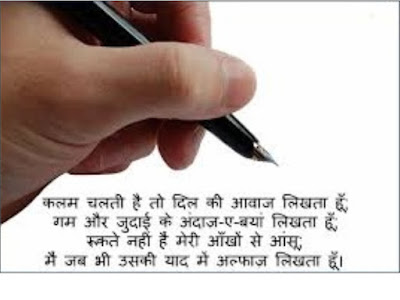 कलम चलती है तो दिल की आवाज लिखता हूँ;
गम और जुदाई के अंदाज-ए-बयां लिखता हूँ;
रुकते नहीं है मेरी आँखों से आंसू;
मैं जब भी उसकी याद में अल्फाज लिखता हूँ।